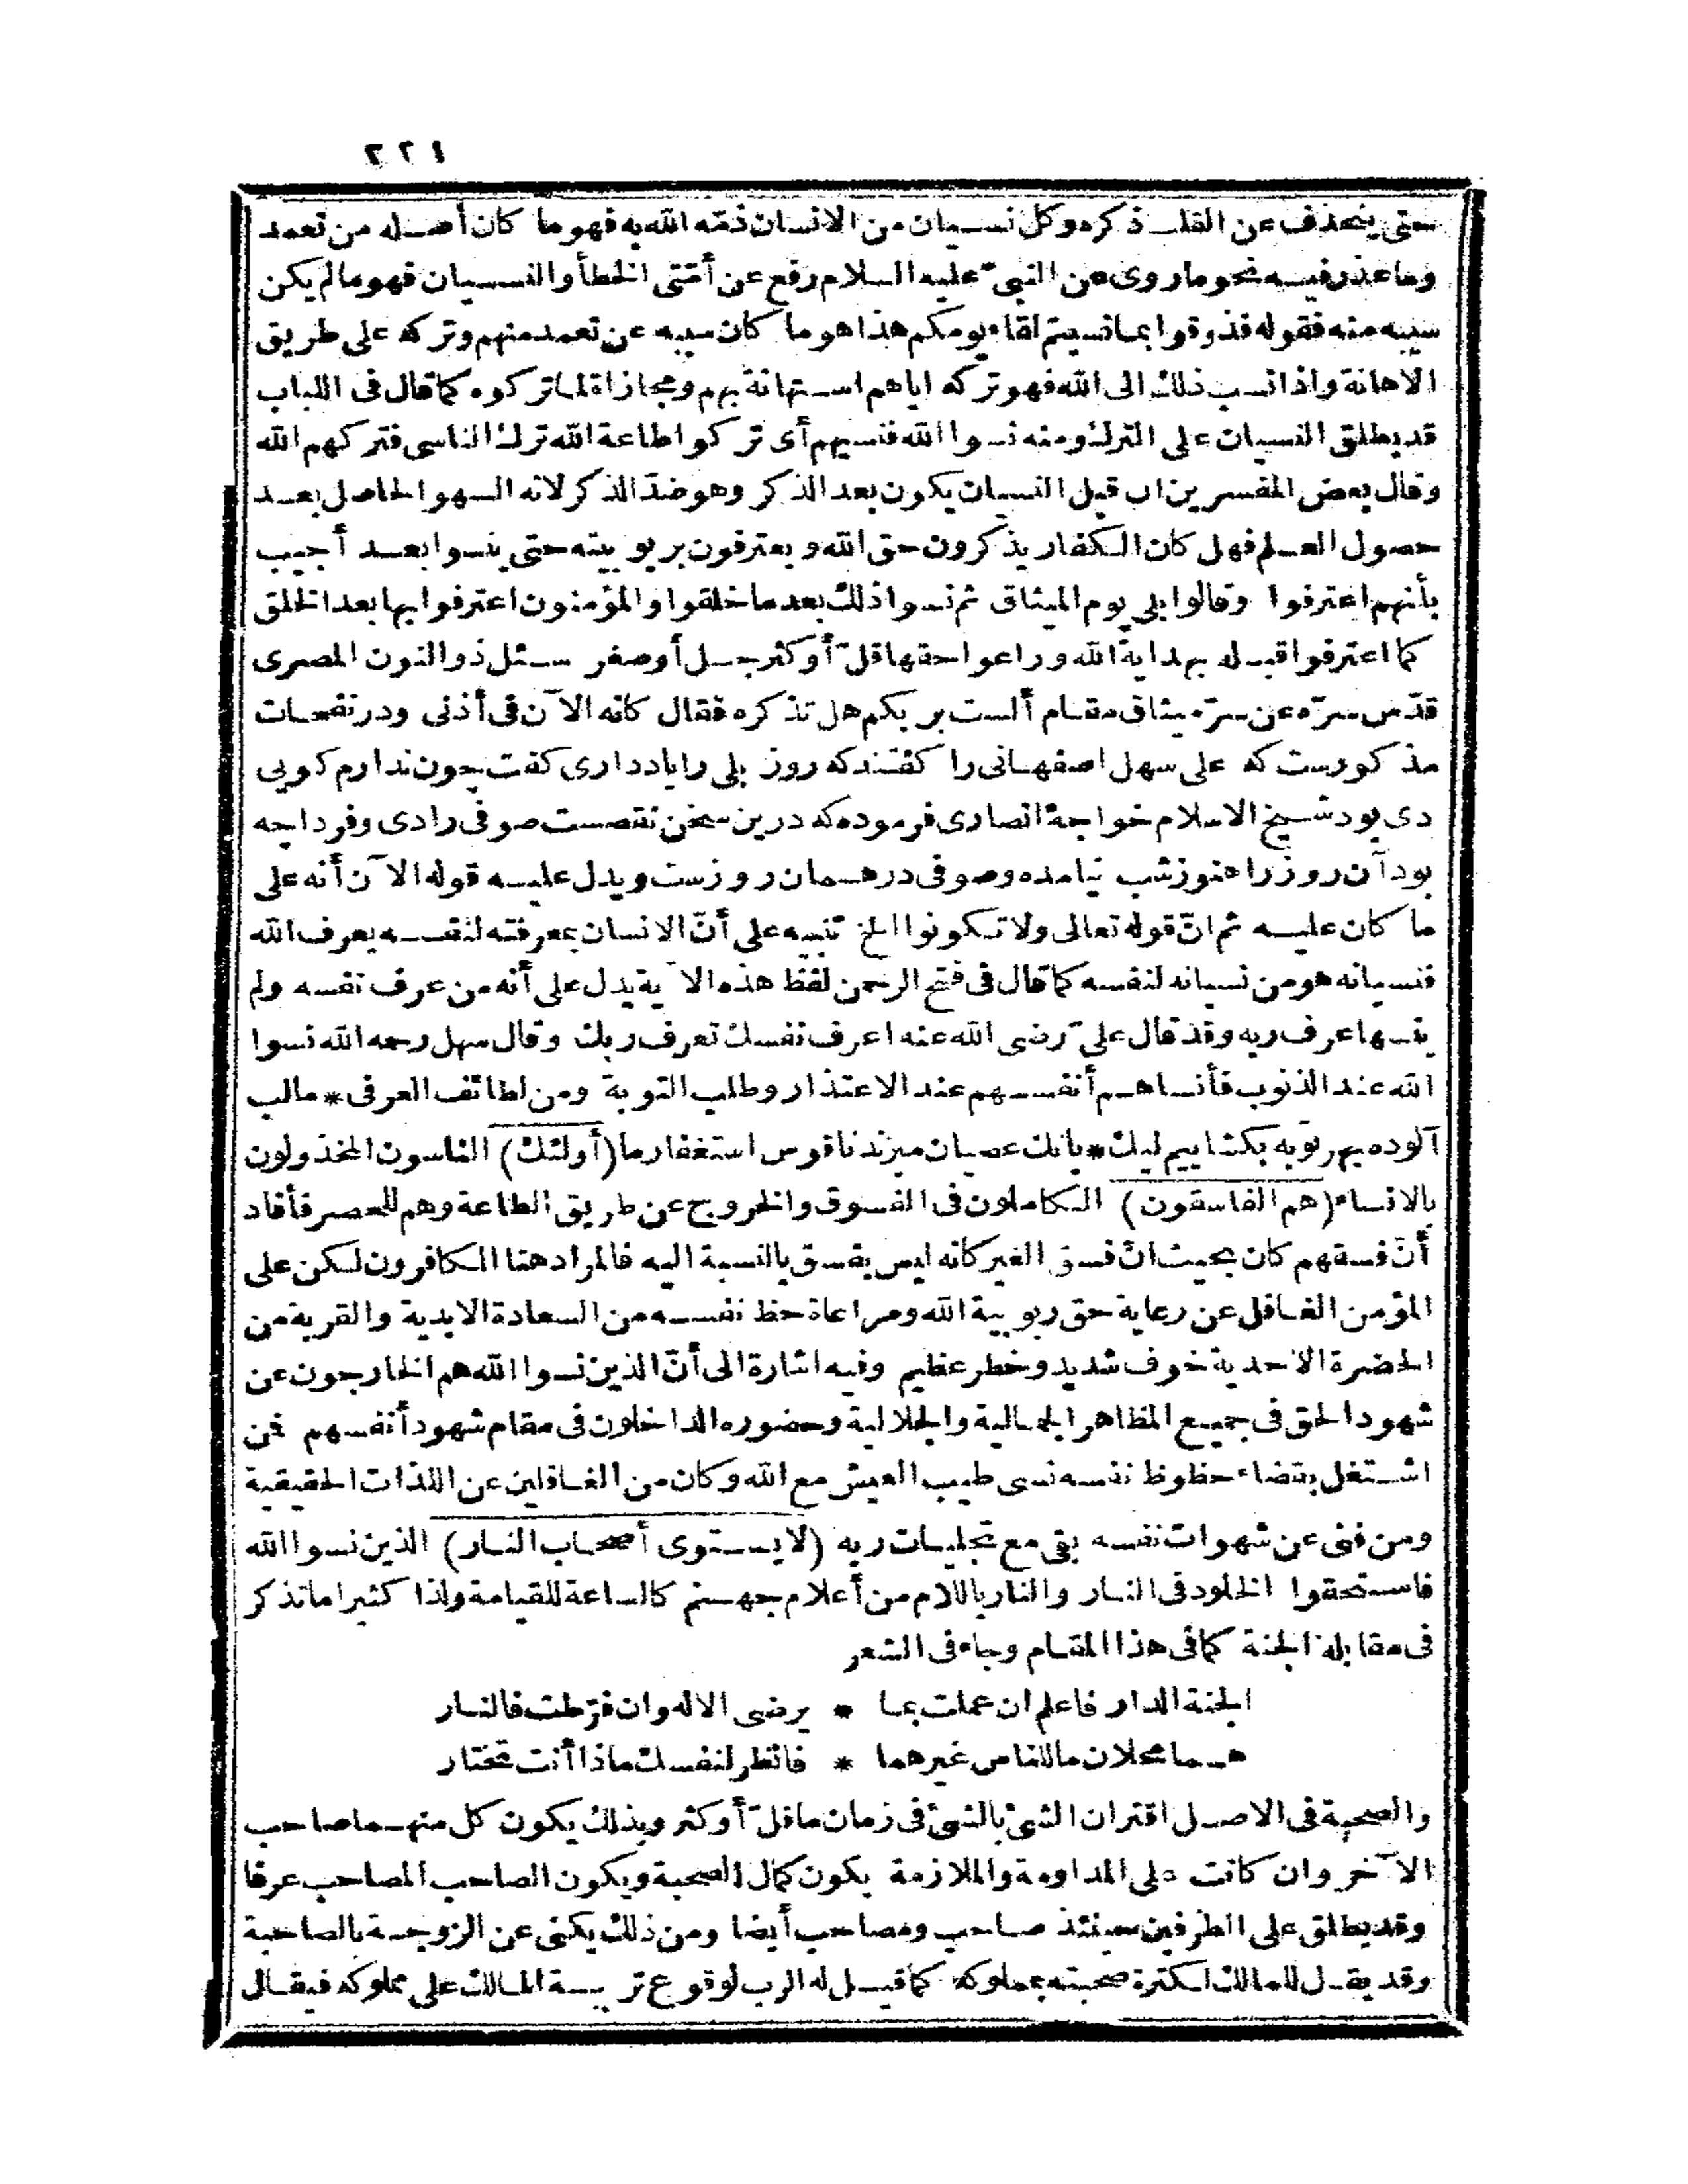 ٢٢٤
حتى ينحذف عن القلب ذكره وكل نسيان من الانسان ذمّه الله به فهو ما كان أصله من تعمد
وما عذر فيه نحو ما روى عن النبىّ عليه السلام رفع عن أمّتى الخطأ والنسيان فهو مالم يكن
سببه منه فقوله فذوقوا بما نسيتم لقاء يومكم هذا هو ما كان سببه عن تعمد منهم وتركه على طريق
الاهانة واذا نسب ذلك الى الله فهو تركه اياهم استهانة بهم ومجازاة لما تركوه كما قال فى اللباب
قد يطلق النسيان على الترك ومنه نسوا الله فنسيهم أى تركوا طاعة الله ترك الناسى فتركهم الله
وقال بعض المفسرين ان قيل النسيان يكون بعد الذكر وهو ضدّ الذكر لانه السهو الحاصل بعد
حصول العلم فهل كان الكفار يذكرون حق الله ويعترفون بربوبيته حتى ينسوا بعد أجيب
بأنهم اعترفوا وقالوا بلى يوم الميثاق ثم نسوا ذلك بعد ما خلقوا والمؤمنون اعترفوا بها بعد الخلق
كما اعترفوا قبله بهداية الله وراعوا حقها قلّ أو كثر جل أو صغر سئل ذو النون المصرى
قدّس سرّه عن سرّ ميثاق مقام ألست بربكم هل تذكره فقال كانه الآن فى أذنى ودر نفحات
مذكورست كه على سهل اصفهانى را كفتند كه روز بلى را ياد دارى كفت چون ندارم كويى
دى بود شيخ الاسلام خواجهٔ انصارى فرموده كه درين سخن نقصست صوفى را دى وفردا چه
بود آن روز را هنوز شب نيامده وصوفى در همان روزست ويدل عليه قوله الآن أنه على
ما كان عليه ثم انّ قوله تعالى ولا تكونوا الخ تنبيه على أنّ الانسان بمعرفته لنفسه يعرف الله
فنسيانه هو من نسيانه لنفسه كما قال فى فتح الرحمن لفظ هذه الآية يدل على أنه من عرف نفسه ولم
ينسها عرف ربه وقد قال علىّ رضى الله عنه اعرف نفسك تعرف ربك وقال سهل رحمه الله نسوا
الله عند الذنوب فأنساهم أنفسهم عند الاعتذار وطلب التوبة ومن لطائف العرفى * ما لب
آلوده بهر توبه بكشاييم ليك * بانك عصيان ميزند ناقوس استغفار ما (أولئك) الناسون المخذولون
بالانساء (هم الفاسقون) الكاملون فى الفسوق والخروج عن طريق الطاعة وهم للحصر فأفاد
أنّ فسقهم كان بحيث انّ فسق الغير كانه ليس بفسق بالنسبة اليه فالمراد هنا الكافرون لكن على
المؤمن الغافل عن رعاية حق ربوبية الله ومراعاة حظ نفسه من السعادة الابدية والقربة من
الحضرة الاحدية خوف شديد وخطر عظيم وفيه اشارة الى أنّ الذين نسوا الله هم الخارجون عن
شهود الحق فى جميع المظاهر الجمالية والجلالية وحضوره الداخلون فى مقام شهود أنفسهم فمن
اشتغل بقضاء حظوظ نفسه نسى طيب العيش مع الله وكان من الغافلين عن اللذات الحقيقية
ومن فنى عن شهوات نفسه بقى مع تجليات ربه (لا يستوى أصحاب النار) الذين نسوا الله
فاستحقوا الخلود فى النار والنار باللام من أعلام جهنم كالساعة للقيامة ولذا كثيرا ما تذكر
فى مقابلة الجنة كما فى هذا المقام وجاء فى الشعر
الجنة الدار فاعلم ان عملت بما * يرضى الاله وان فرّطت فالنار
هما محلان ما للناس غيرهما * فانظر لنفسك ماذا أنت تختار
والصحبة فى الاصل اقتران الشئ بالشئ فى زمان ما قلّ أو كثر وبذلك يكون كل منهما صاحب
الآخر وان كانت على المداومة والملازمة يكون كمال الصحبة ويكون الصاحب المصاحب عرفا
وقد يطلق على الطرفين حينئذ صاحب ومصاحب أيضا ومن ذلك يكنى عن الزوجة بالصاحبة
وقد يقال للمالك لكثرة صحبته بمملوكه كما قيل له الرب لوقوع تربية المالك على مملوكه فيقال